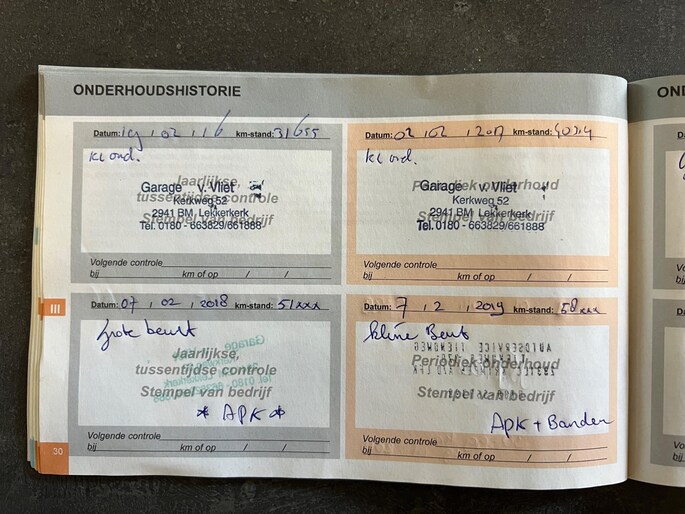 ONDERHOUDSHISTORIE
OND
Datum: 19, 02, 16 km-stand: 31655
kl ond.
Jaarlijkse,
tussentijdse controle
Stempel van bedrijf
Garage v. Vliet
Kerkweg 52
2941 BM Lekkerkerk
Tel. 0180 - 663829/661888
Volgende controle
bij km of op / /
Datum: 02, 02, 2017 km-stand:
kl ond.
Periodiek onderhoud
Stempel van bedrijf
Garage v. Vliet
Kerkweg 52
2941 BM Lekkerkerk
Tel. 0180 - 663829/661888
Volgende controle
bij km of op / /
III
Datum: 07, 02, 2018 km-stand: 51xxx
grote beurt
Jaarlijkse,
tussentijdse controle
Stempel van bedrijf
Garage
* APK *
Volgende controle
bij km of op / /
Datum: 7, 2, 2019 km-stand: 58xxx
kleine Beurt
Periodiek onderhoud
Stempel van bedrijf
AUTOSERVICE TIENDWEG
APK + Banden
Volgende controle
bij km of op / /
30